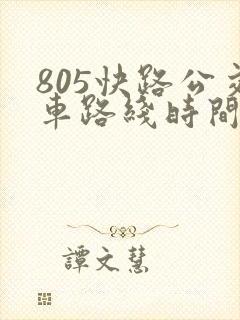 805快路公交
車路綫時間
譚文慧